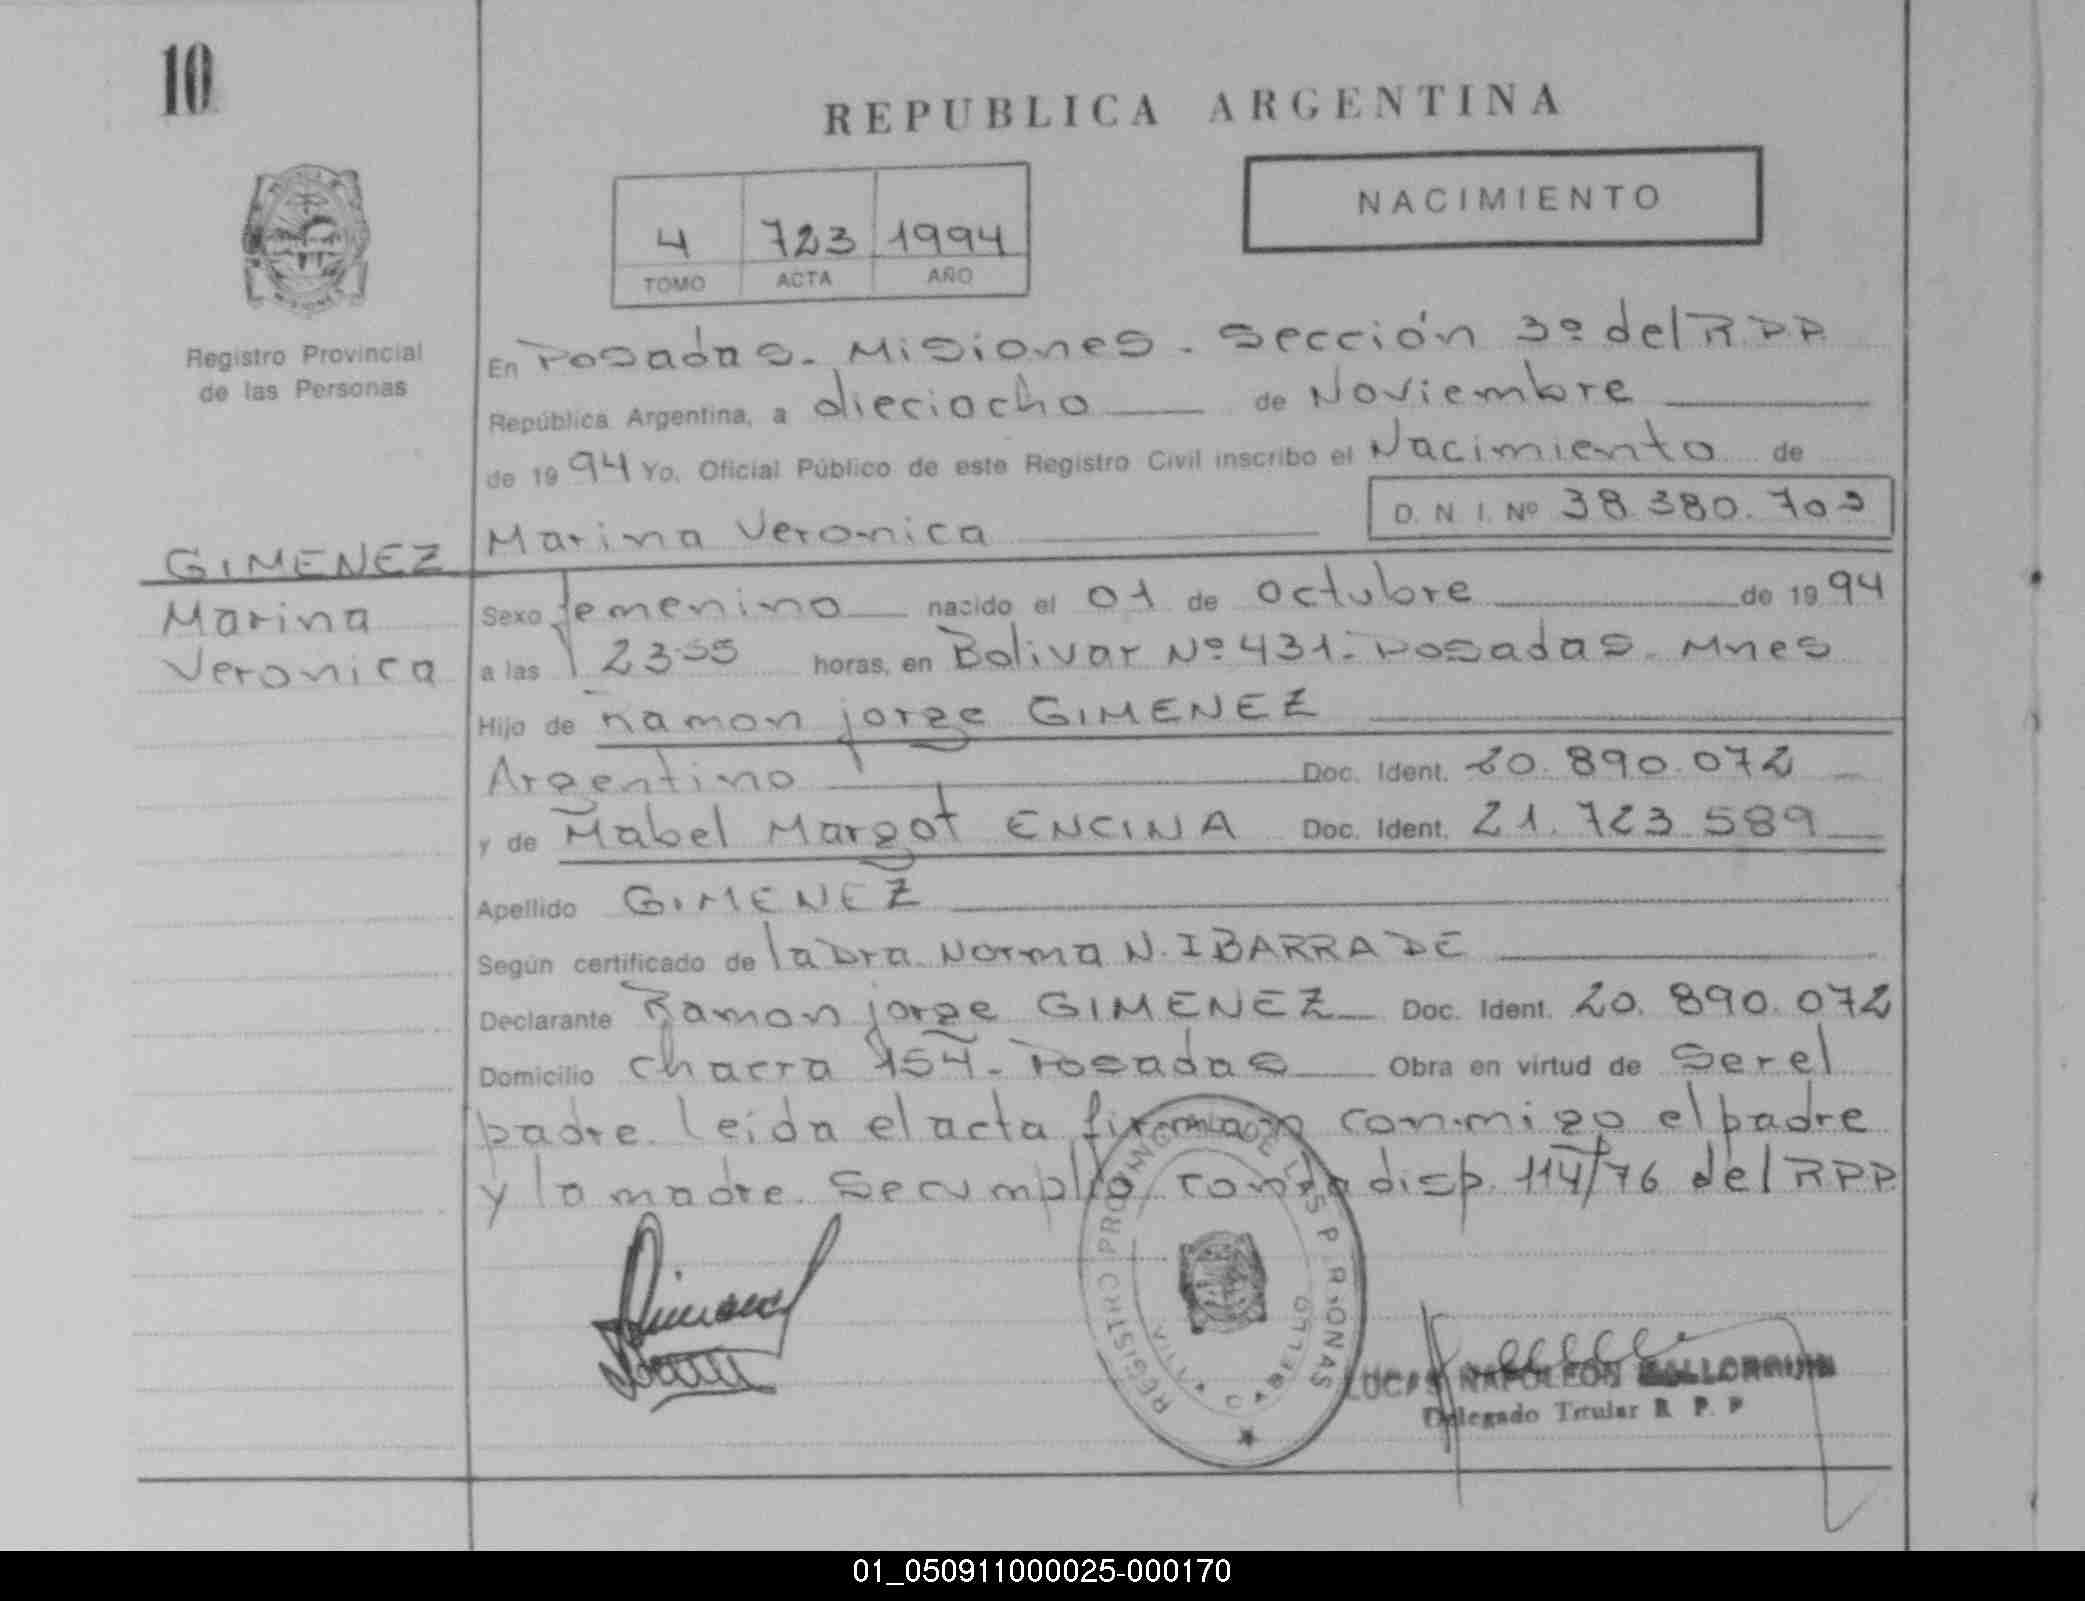 10
REPUBLICA ARGENTINA
NACIMIENTO
4 723 1994
TOMO ACTA AÑO
Registro Provincial
de las Personas
En Posadas - Misiones - Sección 3º del R.P.P.
República Argentina, a dieciocho de Noviembre
de 1994 Yo, Oficial Público de este Registro Civil inscribo el Nacimiento de
D.N.I. Nº 38.380.703
Marina Veronica
GIMENEZ
Marina
Veronica
Sexo femenino nacido el 01 de Octubre de 1994
a las 23.55 horas, en Bolivar Nº 431 - Posadas - Mnes
Hijo de Ramon jorge GIMENEZ
Argentino Doc. Ident. 20.890.072
y de Mabel Margot ENCINA Doc. Ident. 21.723.589
Apellido GIMENEZ
Según certificado de la Dra. Norma N. IBARRA DE
Declarante Ramon jorge GIMENEZ Doc. Ident. 20.890.072
Domicilio chacra 154 - Posadas Obra en virtud de ser el
padre. leida el acta firman conmigo el padre
y la madre. Se cumplió con la disp. 114/76 del R.P.P.
REGISTRO PROVINCIAL DE LAS PERSONAS
VILLA CABELLO
LUCAS NAPOLEON
Delegado Titular R. P. P
01_050911000025-000170